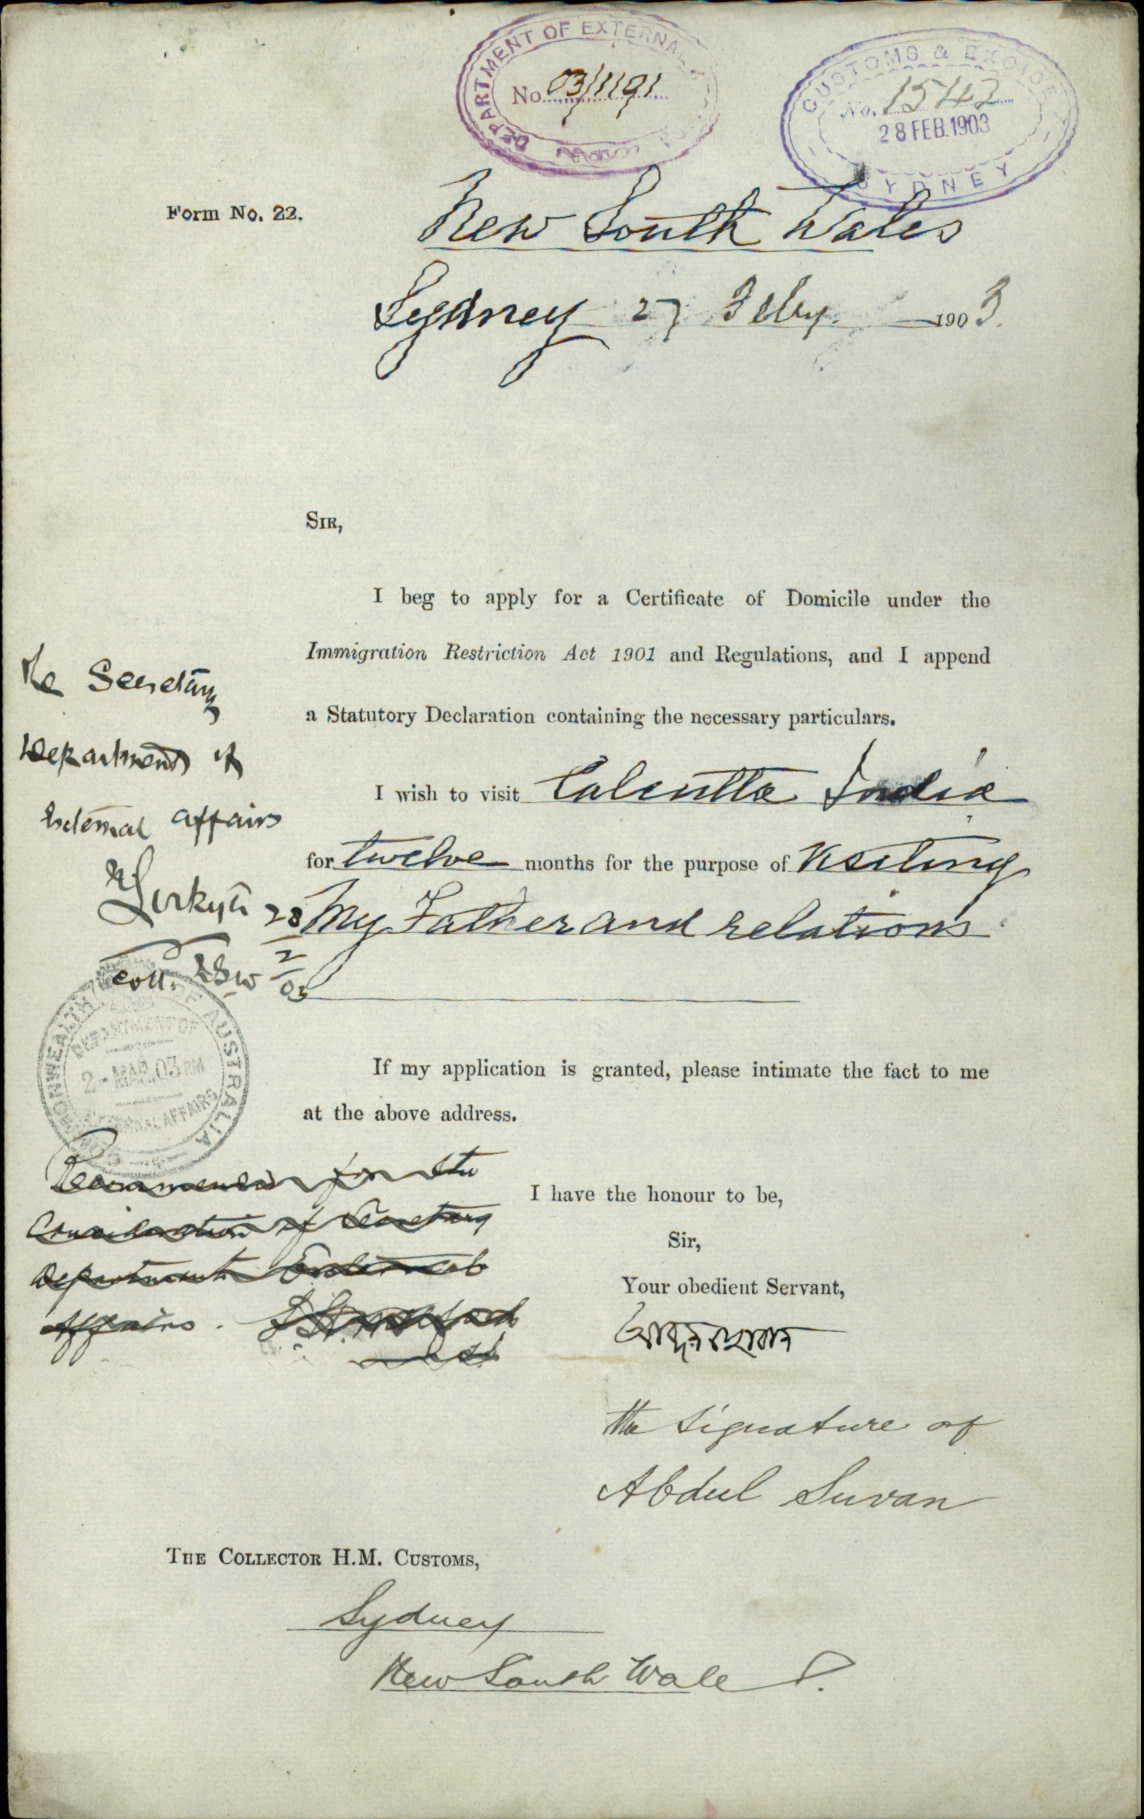 DEPARTMENT OF EXTERNAL
No. 03/1191
CUSTOMS & EXCISE
No. 1542
28 FEB. 1903
SYDNEY
Form No. 22.
New South Wales
Sydney 27 Feby. 1903.
SIR,
I beg to apply for a Certificate of Domicile under the
Immigration Restriction Act 1901 and Regulations, and I append
a Statutory Declaration containing the necessary particulars.
I wish to visit Calcutta India
for twelve months for the purpose of Visiting
My Father and relations
The Secretary
Department of
External Affairs
Coll. NSW
28
2
03
COMMONWEALTH OF AUSTRALIA
DEPARTMENT OF
2 - MAR. 03 PM
EXTERNAL AFFAIRS
If my application is granted, please intimate the fact to me
at the above address.
Recommended for the
Consideration of Secretary
Department External
Affairs.
I have the honour to be,
Sir,
Your obedient Servant,
আবদুল ছোবান
The Signature of
Abdul Suvan
THE COLLECTOR H.M. CUSTOMS,
Sydney
New South Wales.